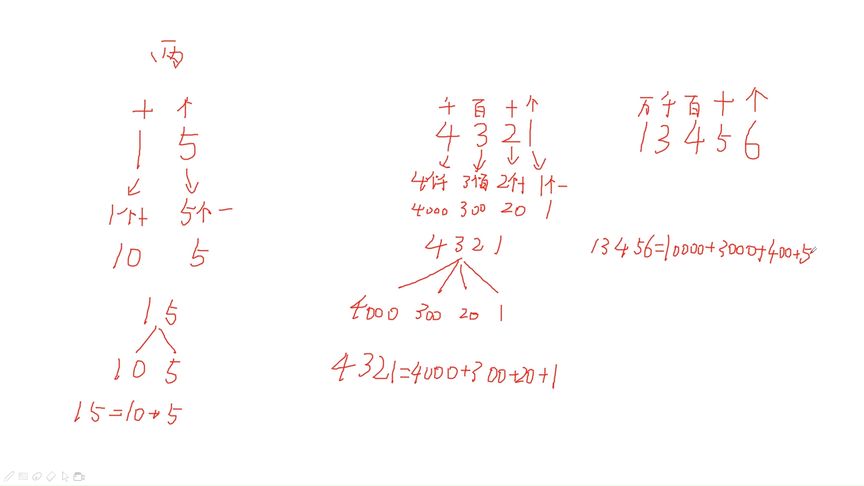 十 个
1 5
1个十 5个一
10 5
1 5
10 5
15=10+5
千 百 十 个
4 3 2 1
4个千 3个百 2个十 1个一
4000 300 20 1
4 3 2 1
4000 300 20 1
4321=4000+300+20+1
万 千 百 十 个
1 3 4 5 6
13456=10000+3000+400+5